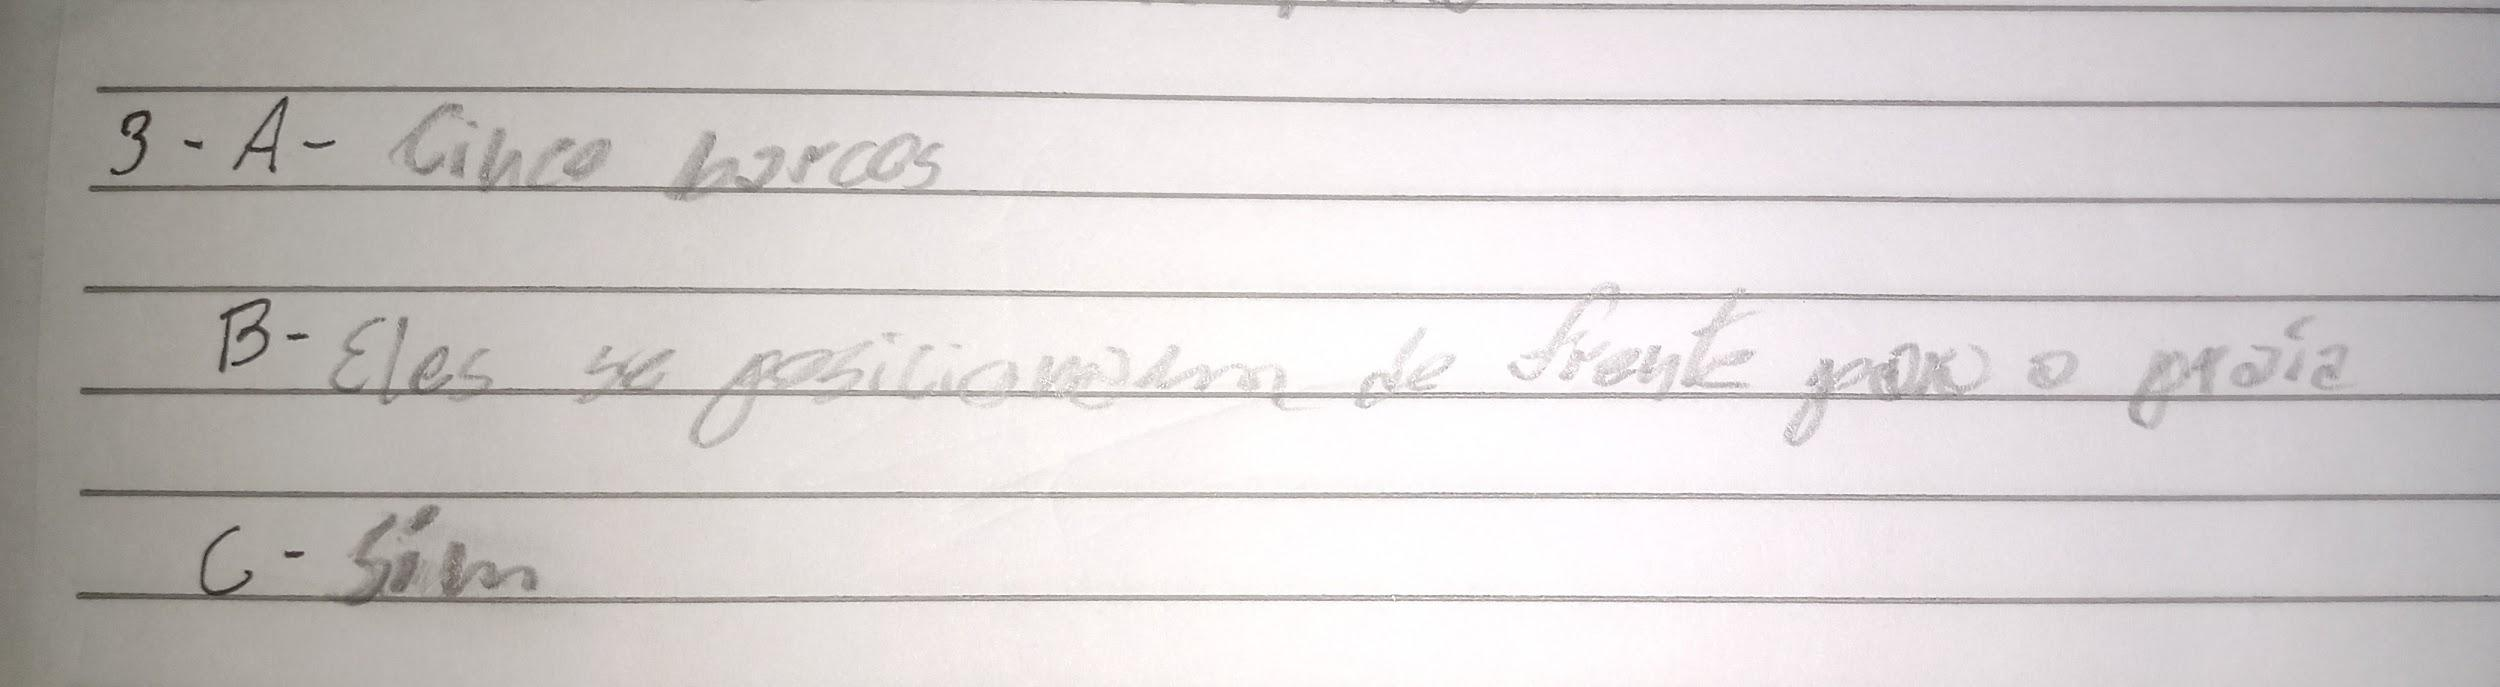 3 - A - Cinco barcos
B - Eles se posicionaram de frente para a praia
C - Sim